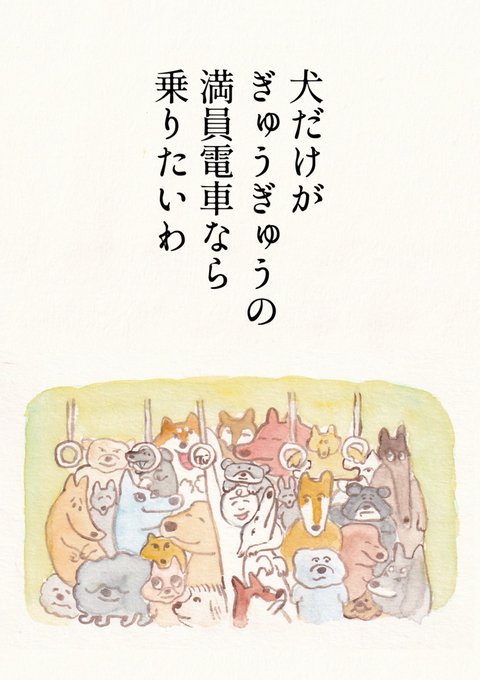 犬だけが
ぎゅうぎゅうの
満員電車なら
乗りたいわ